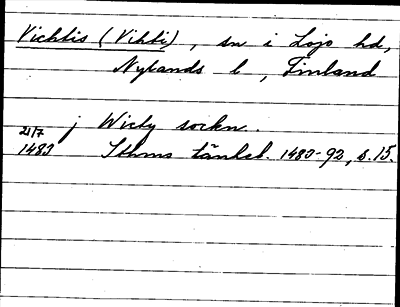 Vichtis (Vihti), sn i Lojo hd,
Nylands l, Finland
21/7 j Wicty sockn.
1483 Sthms tänkeb. 1483-92, s. 15.